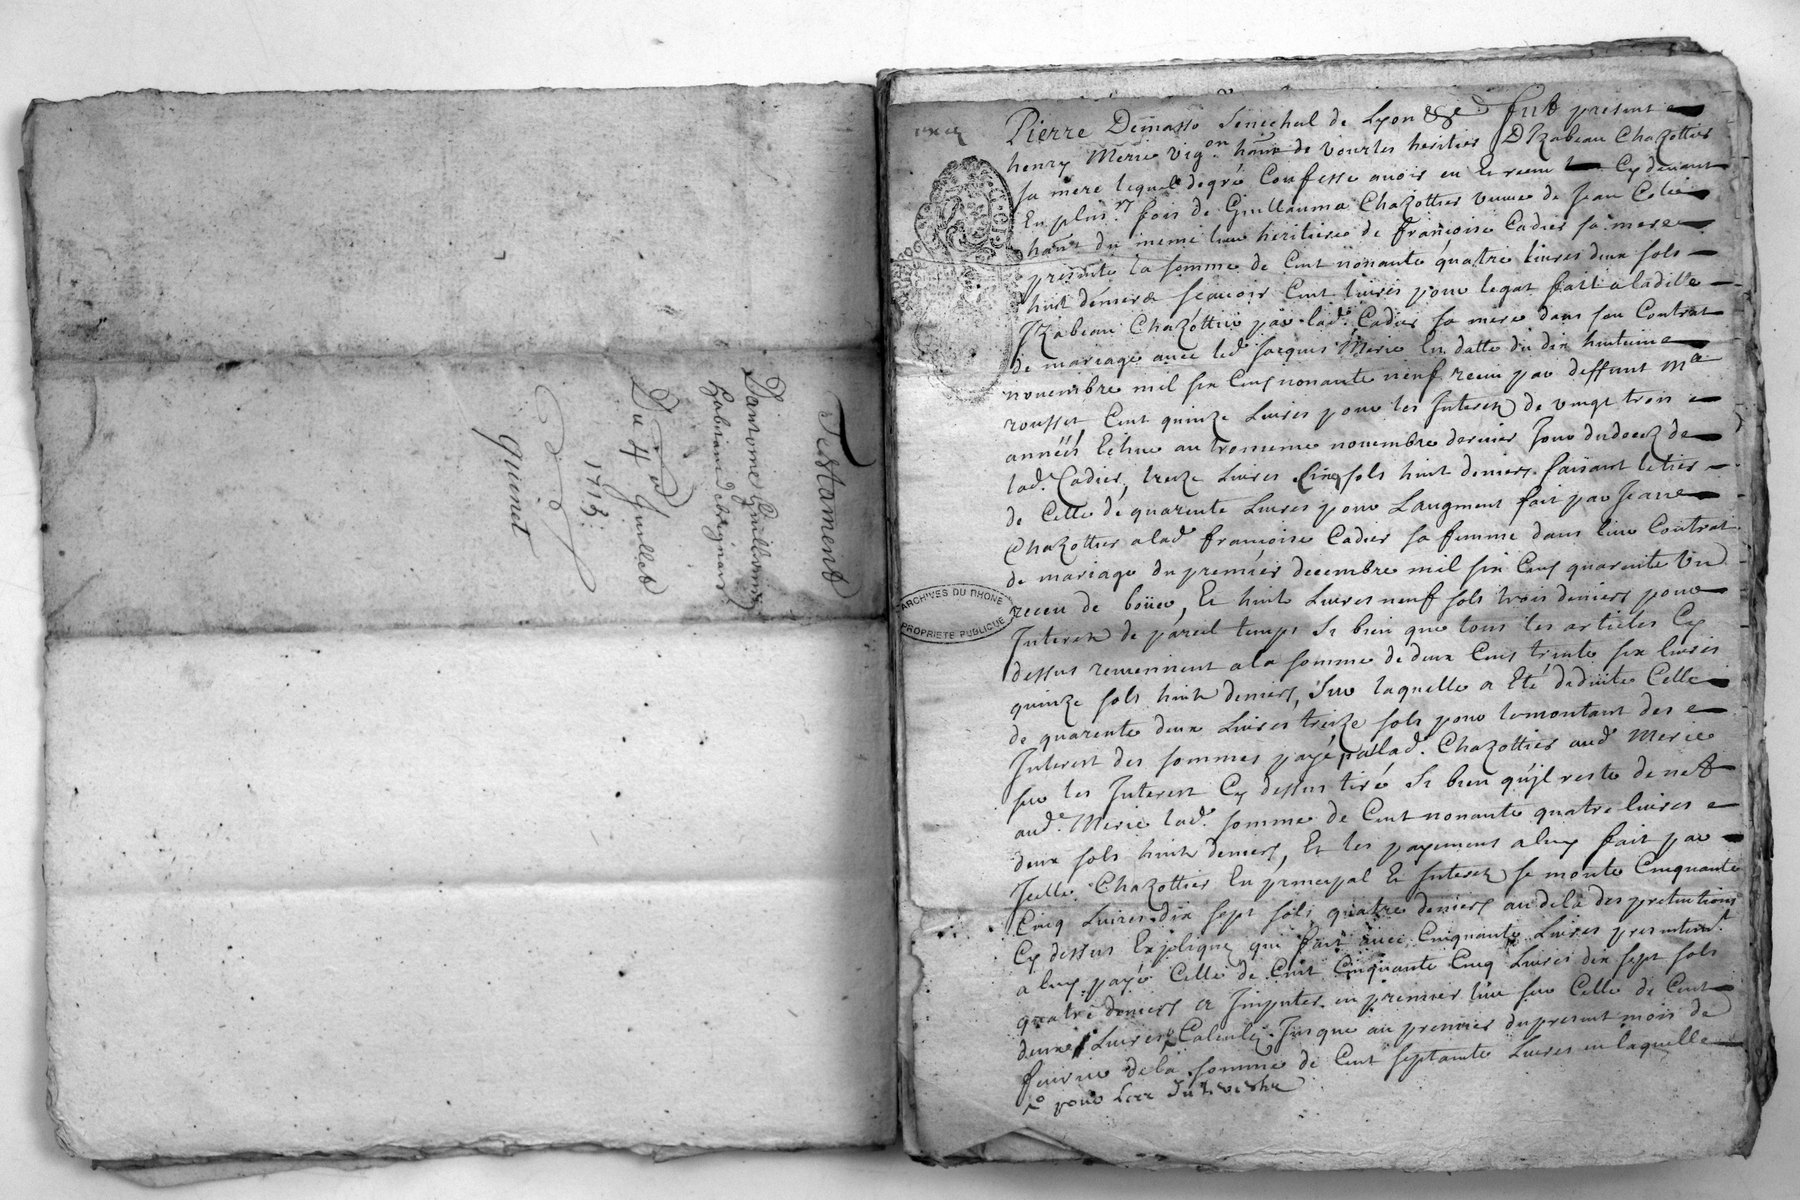 Testament
Dantoine Guillermin
habitant de brignais
Du 4 Juillet
1713.
guinet
Pierre Demasso Senechal de Lyon &c fut present
henry Merie vig.on habt de vourles heritier D'Izabeau Chazottier
sa mere lequel degré Confesse avoir eu Et receu Cy devant
En plus.rs fois de Guillauma Chazottier veuve de Jean
habt du meme lieu heritiere de francoise Cadier sa mere
presente la somme de Cent nonante quatre livres deux sols
huit deniers scavoir Cent livres pour legat fait a ladite
Izabeau Chazottier par lad.e Cadier sa mere dans son Contrat
de mariage avec led. Jacques Merie En datte du dix huitieme
novembre mil six Cens nonante neuf receu par deffunt Me
rousset Cent quinze Livres pour les Interets de vingt trois
années Echue au troisieme novembre dernier Jour du decez de
lad. Cadier, treize Livres Cinq sols huit deniers faisant le tier
de Celle de quarente Livres pour Laugment fait par Jeane
Chazottier a lad. francoise Cadier sa femme dans leur Contrat
de mariage du premier decembre mil six Cens quarente Un
receu de boüer, Et huit Livres neuf sols trois deniers pour
Interets de pareil temps Si bien que tous les articles Cy
dessus reviennent a la somme de deux Cens trente six livres
quinze sols huit deniers, Sur laquelle a Eté deduite Celle
de quarente deux Livres treize sols pour le montant des
Interest des sommes payé par lad. Chazottier aud. Merie
sur les Interest Cy dessus tiré Si bien qu'il reste de nett
aud. Merie lad. somme de Cent nonante quatre livres
deux sols huit deniers, Et les payements a luy fait par
Jcelle Chazottier En principal Et Interets se monte Cinquante
Cinq Livres dix sept sols quatre deniers au dela des pretentions
Cy dessus Expliqué qui fait avec Cinquante Livres presentemt
a luy payé Celle de Cent Cinquante Cinq Livres dix sept sols
quatre deniers a Imputer en premier lieu sur Celle de Cent
deux Livres Calculé Jusque au premier du present mois de
fevrier de la somme de Cent septante Livres en laquelle
pour
ARCHIVES DU RHONE
PROPRIETE PUBLIQUE